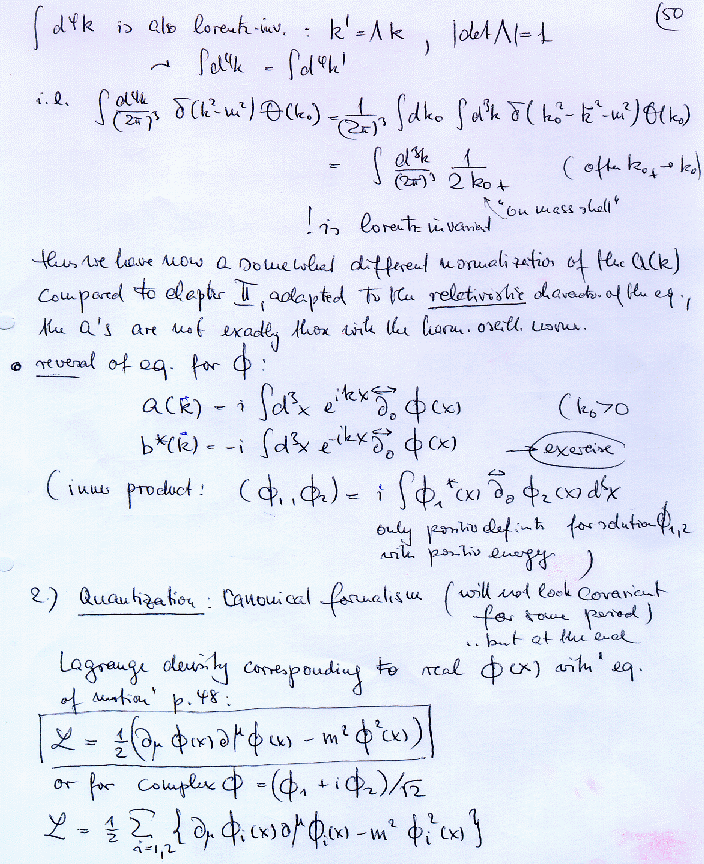 (50
∫ d⁴k is also Lorentz-inv. : k' = Λk , |det Λ| = 1
→ ∫d⁴k = ∫d⁴k'
i.e. ∫ d⁴k/(2π)³ δ(k²-m²) Θ(k₀) = 1/(2π)³ ∫dk₀ ∫d³k δ(k₀²-k⃗²-m²) Θ(k₀)
= ∫ d³k/(2π)³ 1/(2k₀₊) (often k₀₊ → k₀)
"on mass shell"
! is Lorentz invariant
thus we have now a somewhat different normalization of the a(k)
compared to chapter II, adapted to the relativistic character of the eq.,
the a's are not exactly those with the harm. oscill. norm.
• reversal of eq. for ϕ :
a(k⃗) = i ∫d³x e^{ikx} ∂₀↔ ϕ(x) (k₀>0
b*(k⃗) = -i ∫d³x e^{-ikx} ∂₀↔ ϕ(x) → exercise
(inner product: (ϕ₁, ϕ₂) = i ∫ϕ₁*(x) ∂₀↔ ϕ₂(x) d³x
only positiv definite for solution ϕ₁,₂
with positiv energy )
2.) Quantization : Canonical formalism (will not look covariant
for some period)
..but at the end
Lagrange density corresponding to real ϕ(x) with 'eq.
of motion' p. 48 :
ℒ = ½(∂μ ϕ(x) ∂^μ ϕ(x) - m² ϕ²(x))
or for complex ϕ = (ϕ₁ + iϕ₂)/√2
ℒ = ½ Σ_{i=1,2} { ∂μ ϕᵢ(x) ∂^μ ϕᵢ(x) - m² ϕᵢ²(x) }